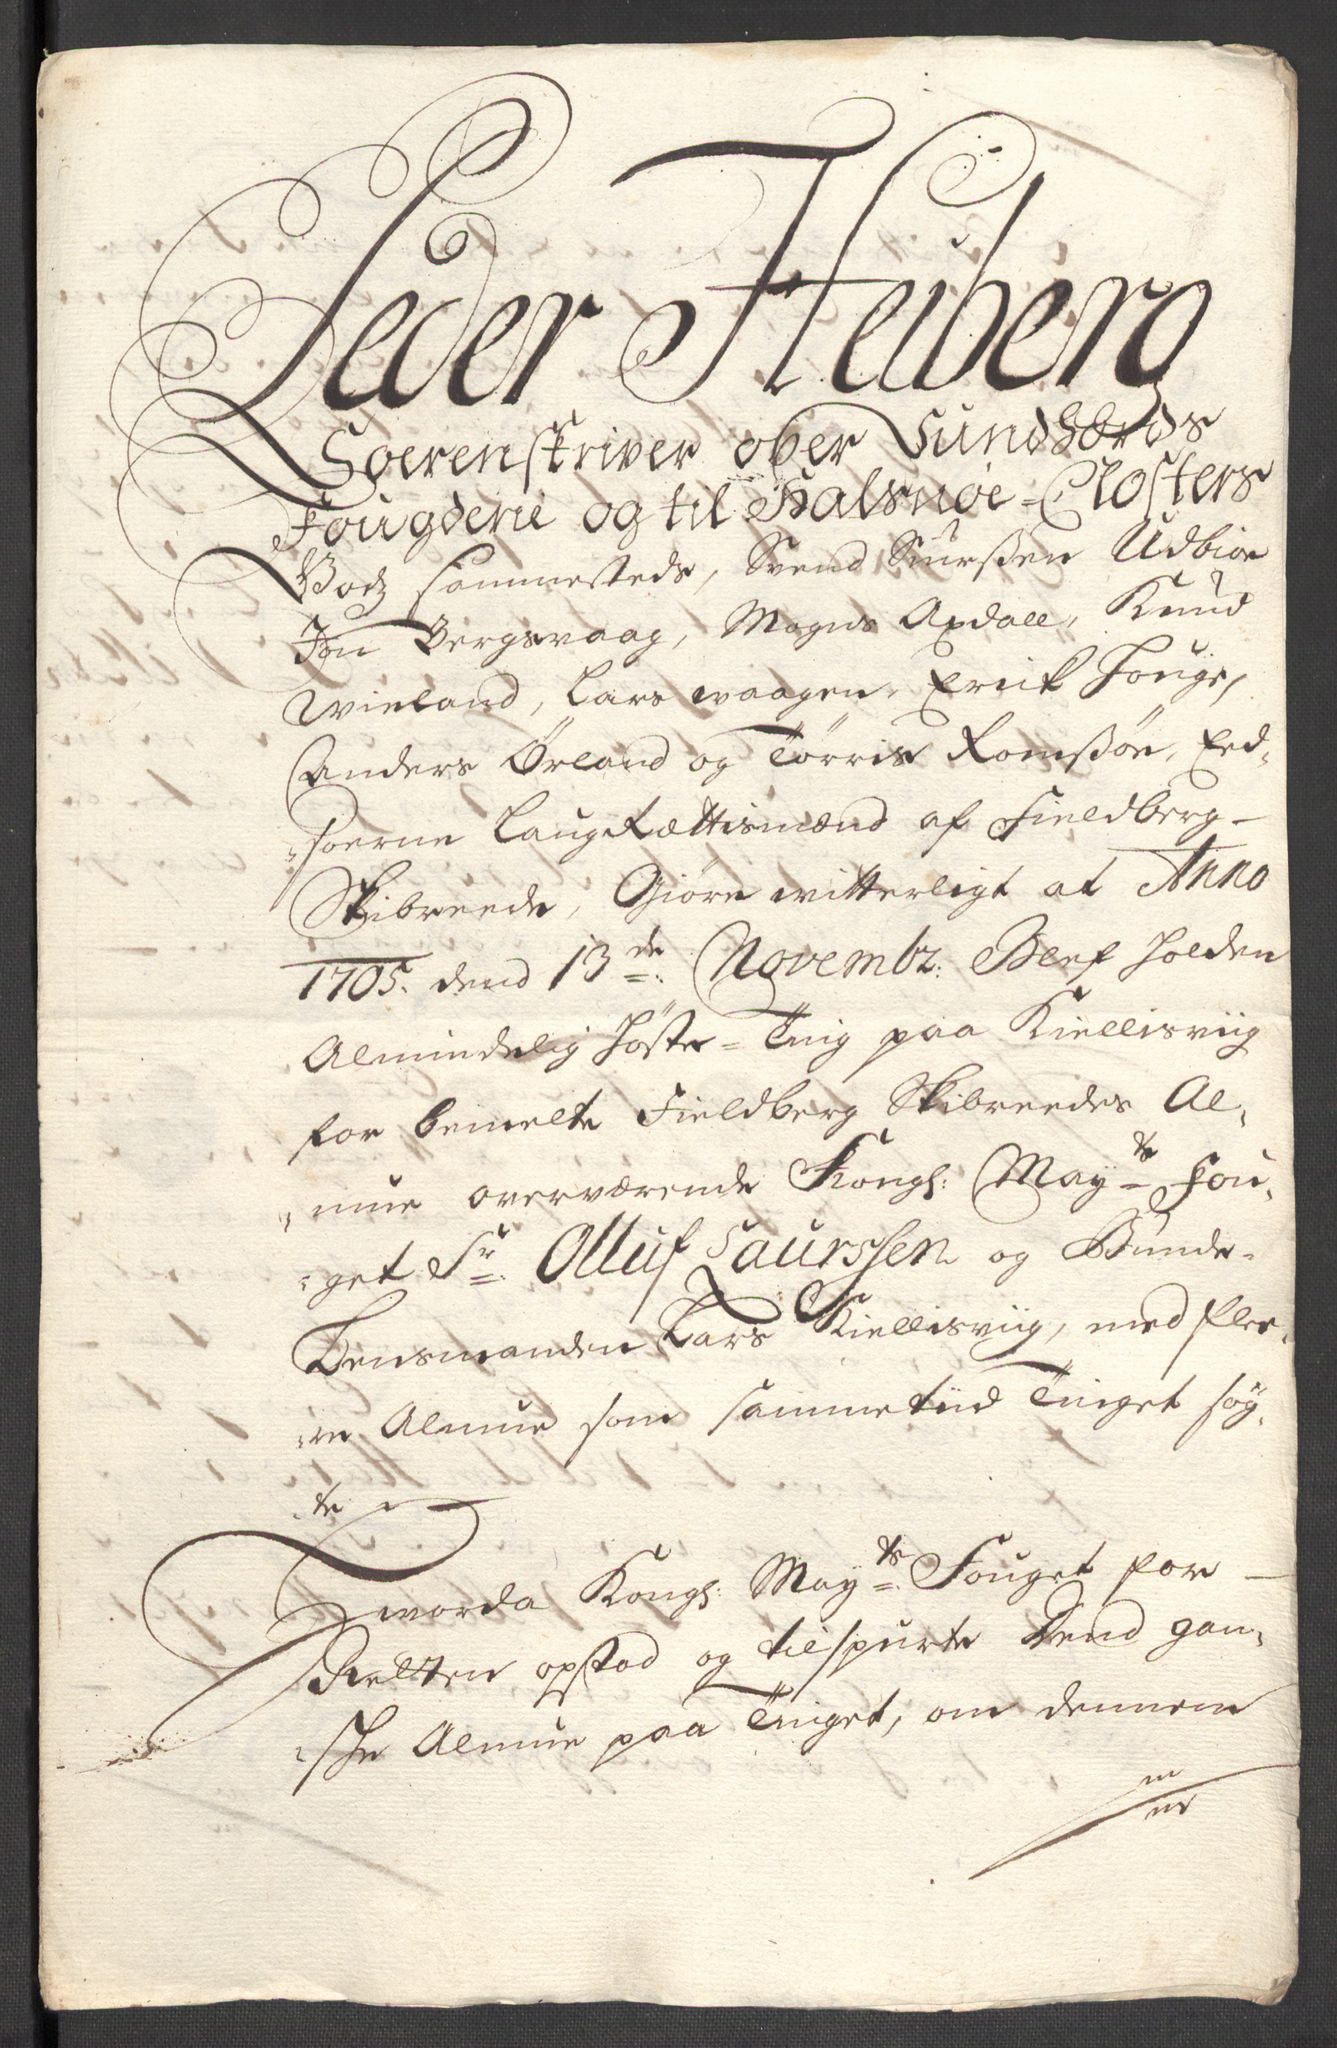 Peder Heiberg
Soerenskriver ober Sundhords
Fougderie og til Halsnøe-Closters
Godz sammesteds, Svend Siurßen Udbioe
Jon Bergsvaag, Mogns Axdall, Knud
Wieland, Lars waagen, Erick Houge,
Anders Ørland og Tørris Romßøe, Eed-
soerne Laugrættismænd af Fieldberg-
Skibreede, Giøre witterligt at Anno
1705. dend 13de Novembr: Blef holden
Almindelig Høste-Ting paa Kiellisviig
for bemelte Fieldberg Skibreedes Al-
mue overværende Kongl: Mayts Fou-
get Sr. Olluf Laurssen og Bunde-
Lensmanden Lars Kiellisviig, med fler-
re Almue som sammetiid Tinget søg-
te
Hvorda Kongl: Mayts Fouget for
Retten opstod og tilspurte Dend gan-
ske Almue paa Tinget, om dennem